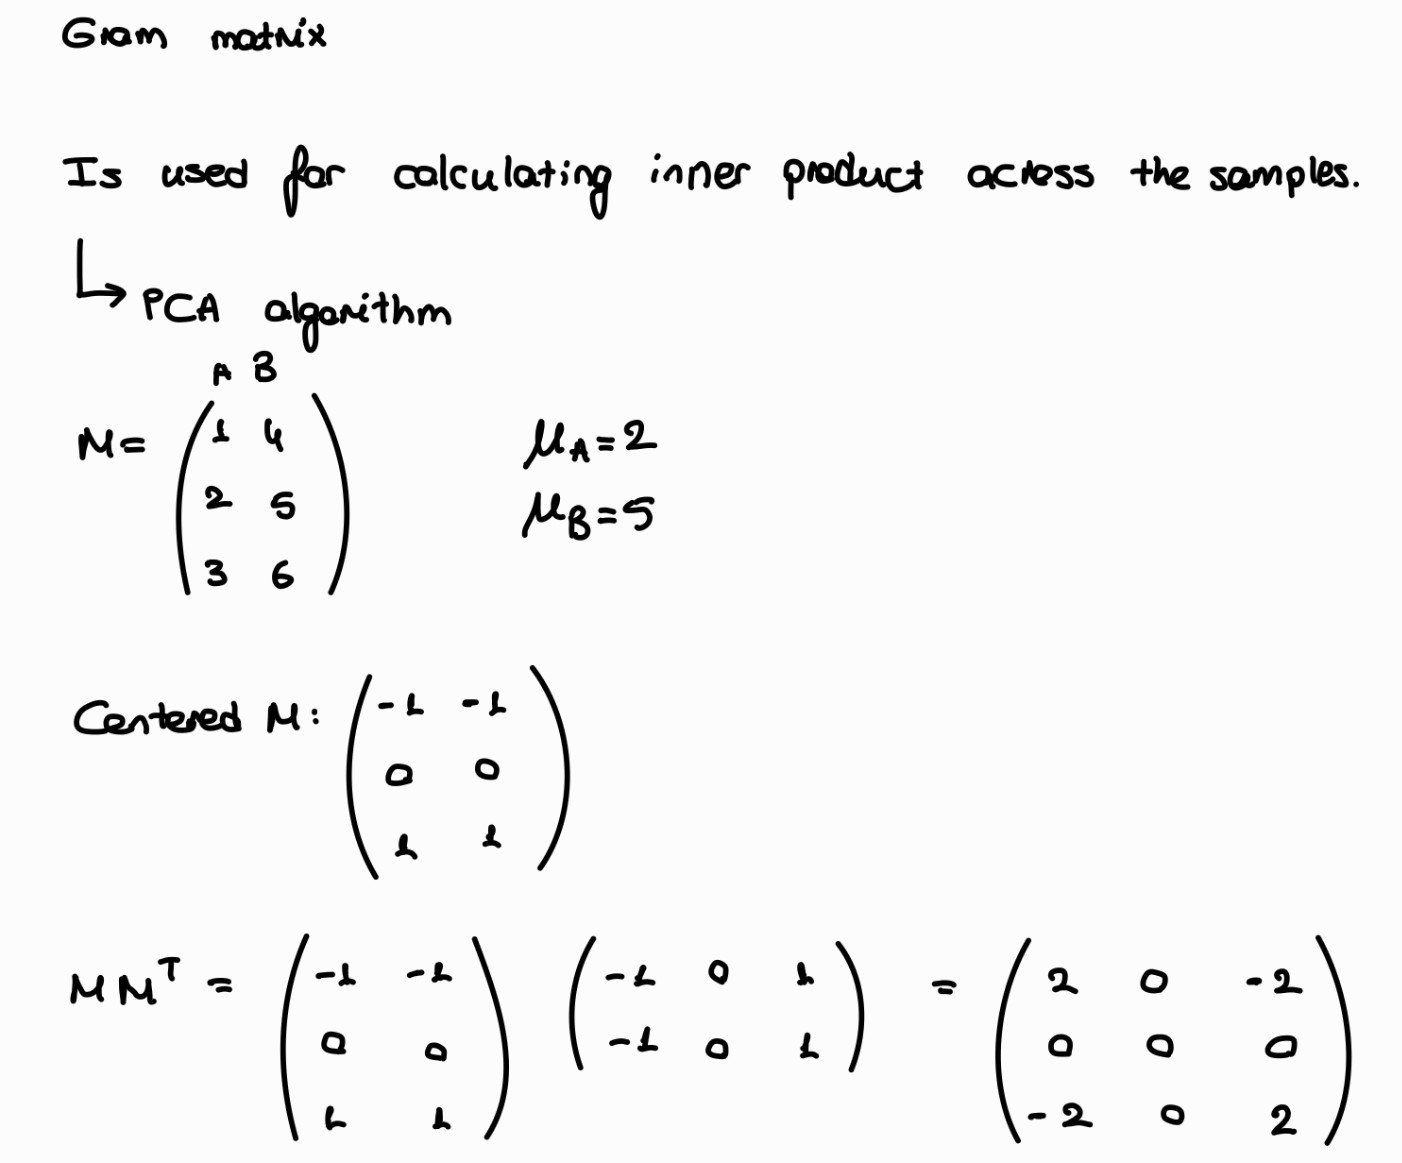 Gram matrix
Is used for calculating inner product across the samples.
PCA algorithm
A B
M= 1 4 μA=2
2 5 μB=5
3 6
Centered M: -1 -1
0 0
1 1
M M^T = -1 -1 -1 0 1 = 2 0 -2
0 0 -1 0 1 0 0 0
1 1 -2 0 2